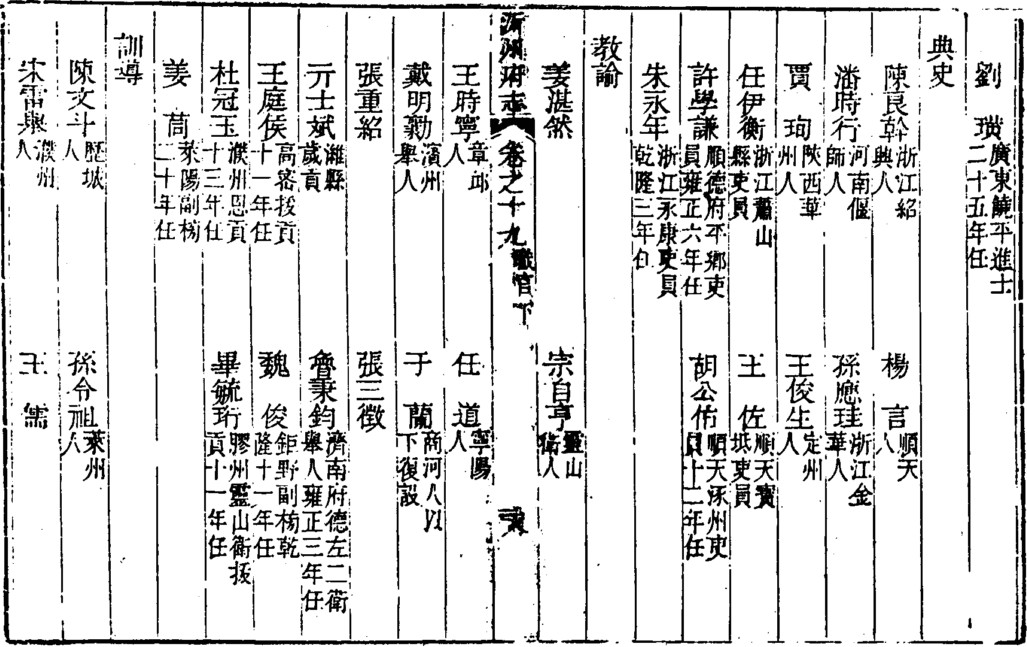 劉　璜廣東饒平進士二十五年任
典史
陳良幹浙江紹興人　楊　言順天人
潘時行河南偃師人　孫應珪浙江金華人
賈　珣陝西華州人　王俊生定州人
任伊衡浙江蕭山縣吏員　王　佐順天寶坻吏員
許學謙順德府平鄉吏員雍正六年任　胡公佑順天涿州吏員十二年任
朱永年浙江永康吏員乾隆三年任
教諭
姜湛然　宗自亨靈山衛人
沂州府志　卷之十九職官下
王時寧章邱人　任　道寧陽人
戴明勷濱州舉人　于　蘭商河人以下復設
張重紹　張三徵
亓士斌濰縣歲貢　魯秉鈞濟南府德左二衛舉人雍正三年任
王庭侯高密拔貢十一年任　魏　俊鉅野副榜乾隆十一年任
杜冠玉濮州恩貢十三年任　畢毓珩膠州靈山衛拔貢十一年任
姜　萵萊陽副榜二十年任
訓導
陳文斗歷城人　孫令祖萊州人
宋雷舉濮州人　王　儒